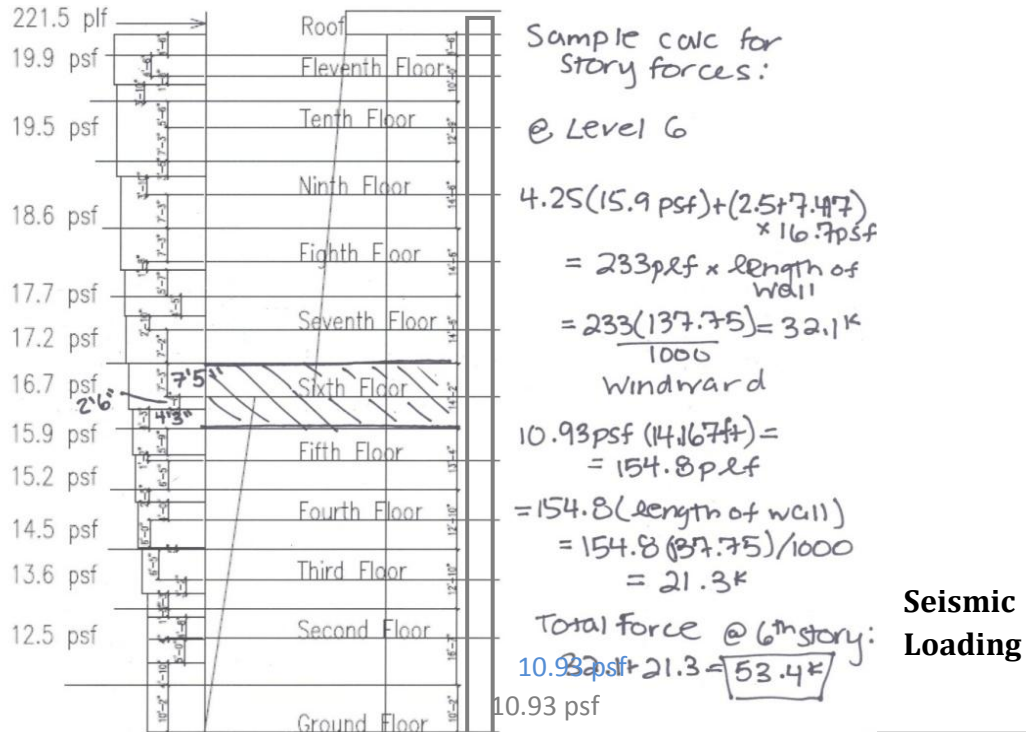 221.5 plf
19.9 psf
19.5 psf
18.6 psf
17.7 psf
17.2 psf
16.7 psf
15.9 psf
15.2 psf
14.5 psf
13.6 psf
12.5 psf
7'5"
2'6"
4'3"
Roof
Eleventh Floor
Tenth Floor
Ninth Floor
Eighth Floor
Seventh Floor
Sixth Floor
Fifth Floor
Fourth Floor
Third Floor
Second Floor
Ground Floor
10'-0"
12'-9"
14'-6"
14'-5"
14'-5"
14'-2"
13'-4"
12'-10"
12'-10"
10'-2"
Sample calc for
story forces:
@ Level 6
4.25(15.9 psf)+(2.5+7.417)
× 16.7psf
= 233plf × length of
wall
= 233(137.75) = 32.1ᴷ
1000
Windward
10.93psf (14.167ft) =
= 154.8plf
= 154.8(length of wall)
= 154.8(137.75)/1000
= 21.3ᴷ
Total Force @ 6th story:
32.1+21.3 = 53.4ᴷ
10.93 psf
10.93 psf
Seismic
Loading